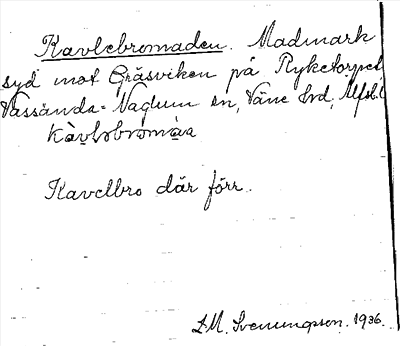 Kavlebromaden. Madmark
syd mot Gräsviken på Ryketorpet,
Vassända-Naglum sn, Väne hd, Älfsb. l
Kavlebro där förr.
L.M. Svenungsson. 1936.